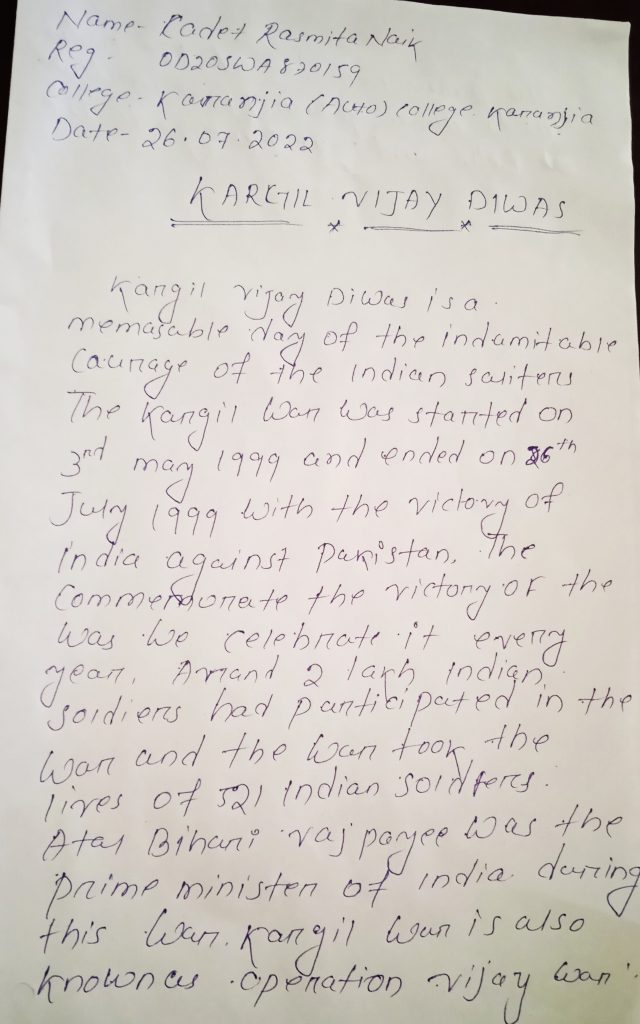 Name- Cadet Rasmita Naik
Reg. OD20SWA820159
College- Karanjia (Auto) College Karanjia
Date- 26.07.2022
KARGIL VIJAY DIWAS
Kargil vijay Diwas is a
memasable day of the indamitable
Caurage of the Indian
The Kargil War was started on
3rd may 1999 and ended on 26th
July 1999 with the victory of
India against Pakistan. The
Commemorate the victory of the
Was we celebrate it every
year. Arrand 2 lakh Indian
soldiers had participated in the
War and the War took the
lives of 521 Indian soldiers.
Atal Bihari vajpayee was the
prime minister of India during
this War. Kargil War is also
known as operation vijay war.